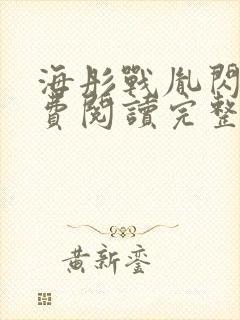 海彤戰胤閃
費閱讀完整
黃新鑾